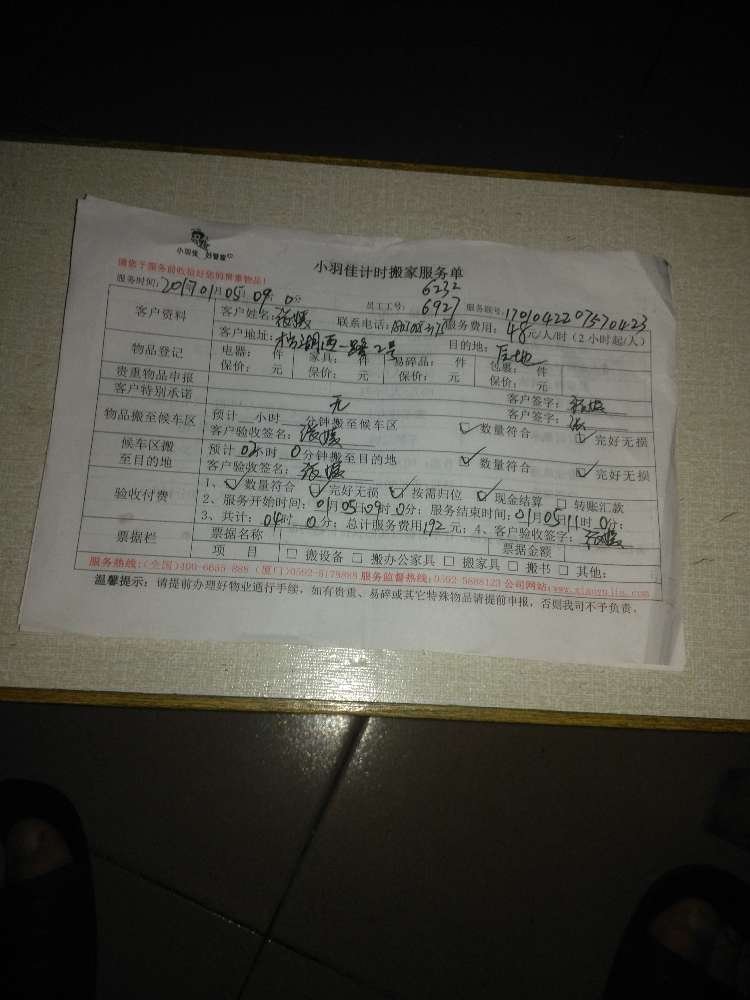 小羽佳 好管家
小羽佳计时搬家服务单
请您于服务前收拾好您的贵重物品!
6232
服务时间:2017 01月05日09时0分 员工工号:6927 服务账号:17010422075 70423
客户资料 客户姓名:张媛 联系电话: 服务费用:48元/人/时(2小时起/人)
客户地址: 湖西一路2号 目的地:
物品登记 电器: 件 家具: 件 易碎品: 件 包裹: 件
保价: 元 保价: 元 保价: 元 保价: 元
贵重物品申报 无 客户签字:
客户特别承诺 客户签字:张
物品搬至候车区 预计 小时 分钟搬至候车区 ☑数量符合 ☑完好无损
客户验收签名:张媛
候车区搬至目的地 预计02小时 0分钟搬至目的地 ☑数量符合 ☑完好无损
客户验收签名:张媛
验收付费 1、☑数量符合 ☑完好无损 ☑按需归位 ☑现金结算 □转账汇款
2、服务开始时间:01月05日09时0分;服务结束时间:01月05日11时0分;
3、共计:04时 0分;总计服务费用192元;4、客户验收签字:张媛
票据栏 票据名称 票据金额
项 目 □搬设备 □搬办公家具 □搬家具 □搬书 □其他:
服务热线:(全国)400-6655-888 (厦门)0592-5179888 服务监督热线:0592-5888123 公司网站:www.xiaoyujia.com
温馨提示:请提前办理好物业通行手续,如有贵重、易碎或其它特殊物品请提前申报,否则我司不予负责。